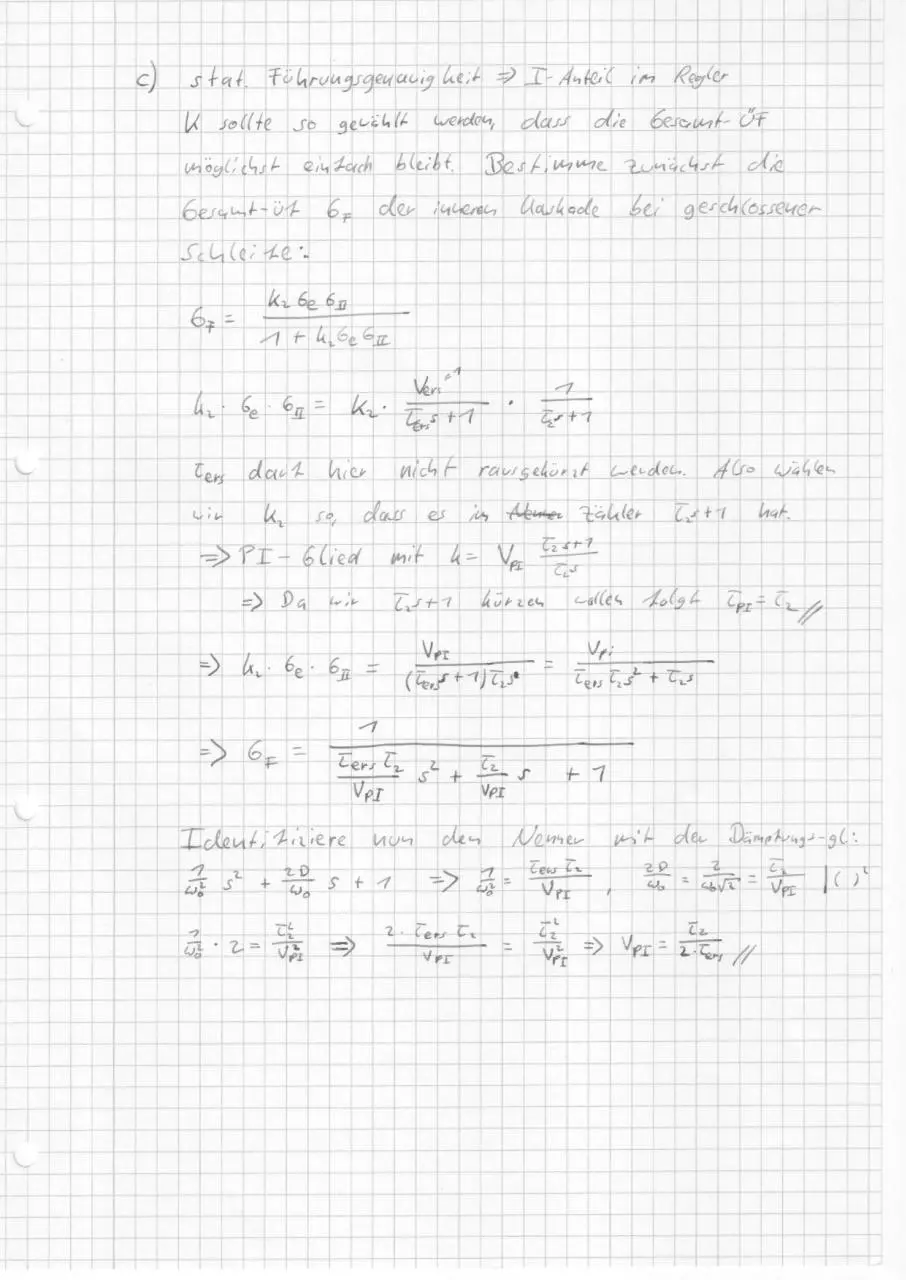 c) stat. Führungsgenauigkeit ⇒ I-Anteil im Regler
K sollte so gewählt werden, dass die Gesamt-ÜF
möglichst einfach bleibt. Bestimme zunächst die
Gesamt-üf G_F der inneren Kaskade bei geschlossener
Schleife:
G_F = (K_2 G_e G_II) / (1 + K_2 G_e G_II)
K_2 · G_e · G_II = K_2 · (V_ers^{=1}) / (τ_ers s + 1) · 1 / (τ_2 s + 1)
τ_ers darf hier nicht rausgekürzt werden. Also wählen
wir K_2 so, dass es im Zähler τ_2 s + 1 hat.
⇒ PI-Glied mit K = V_PI (τ_2 s + 1) / (τ_2 s)
⇒ Da wir τ_2 s + 1 kürzen wollen folgt τ_PI = τ_2 //
⇒ K_2 · G_e · G_II = V_PI / ((τ_ers s + 1) τ_2 s) = V_Pi / (τ_ers τ_2 s² + τ_2 s)
⇒ G_F = 1 / ((τ_ers τ_2 / V_PI) s² + (τ_2 / V_PI) s + 1)
Identifiziere nun den Nenner mit der Dämpfungs-gl:
1/ω_0² s² + 2D/ω_0 s + 1 ⇒ 1/ω_0² = (τ_ers τ_2) / V_PI , 2D/ω_0 = 2/(ω_0 √2) = τ_2 / V_PI | ( )²
1/ω_0² · 2 = τ_2² / V_PI² ⇒ (2 · τ_ers τ_2) / V_PI = τ_2² / V_PI² ⇒ V_PI = τ_2 / (2 · τ_ers) //